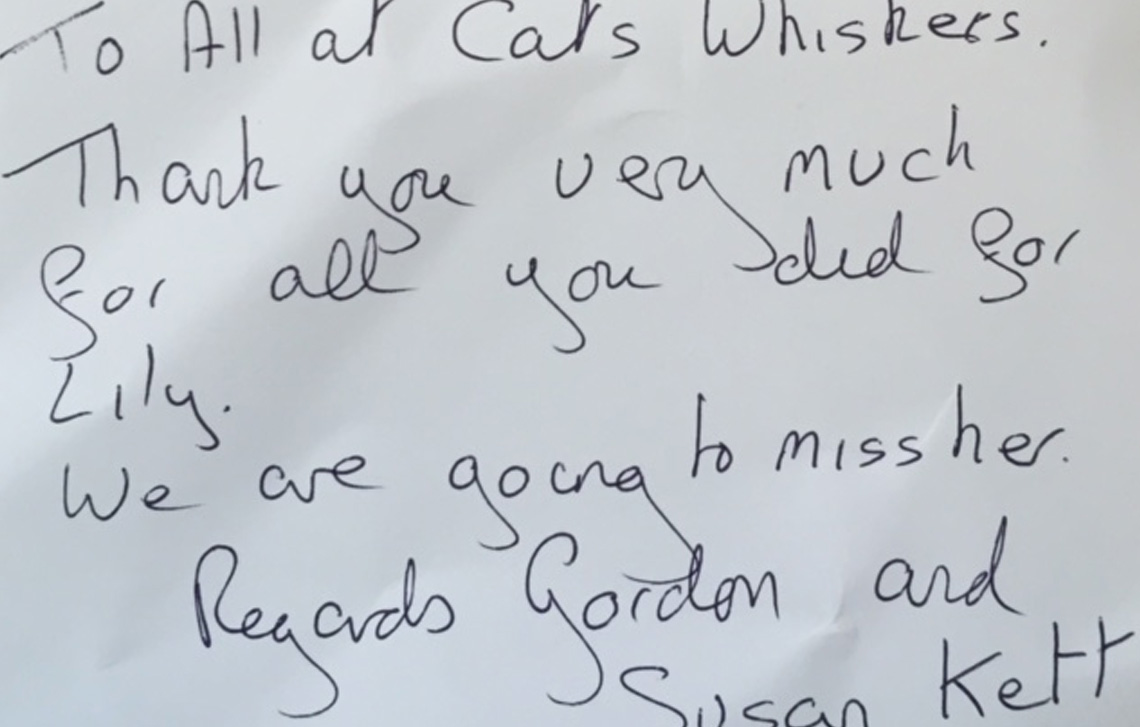 To All at Cats Whiskers.
Thank you very much
for all you did for
Lily.
We are going to miss her.
Regards Gordon and
Susan Kett